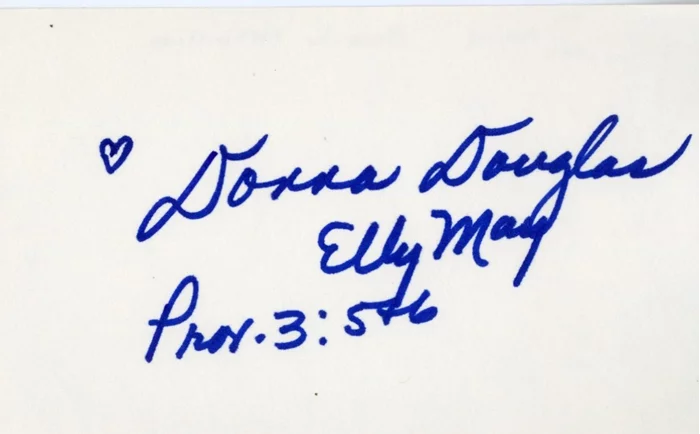 ♡ Donna Douglas
Elly May
Prov. 3:5+6